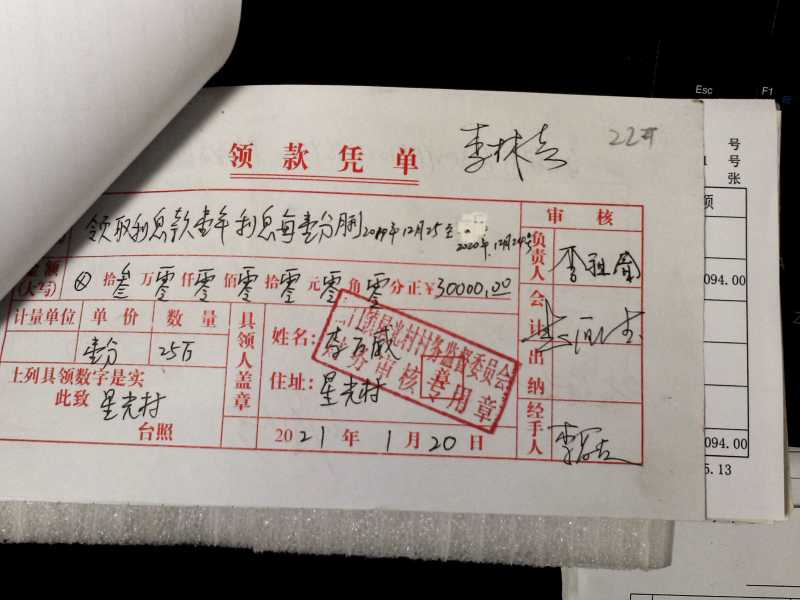 Esc F1
22#
领款凭单
号
号
张
领取利息款壹年利息每壹分 2019年12月25至2020年12月24号
审核
(大写) ⊗拾叁万零仟零佰零拾零元零角零分正¥30000.00
负责人
094.00
计量单位 单价 数量
具领人盖章
姓名:
会计
壹分 25万
村村务监督委员会
财务审核专用章
出纳
上列具领数字是实
住址: 星光村
此致 星光村
经手人
094.00
台照
2021年1月20日
5.13